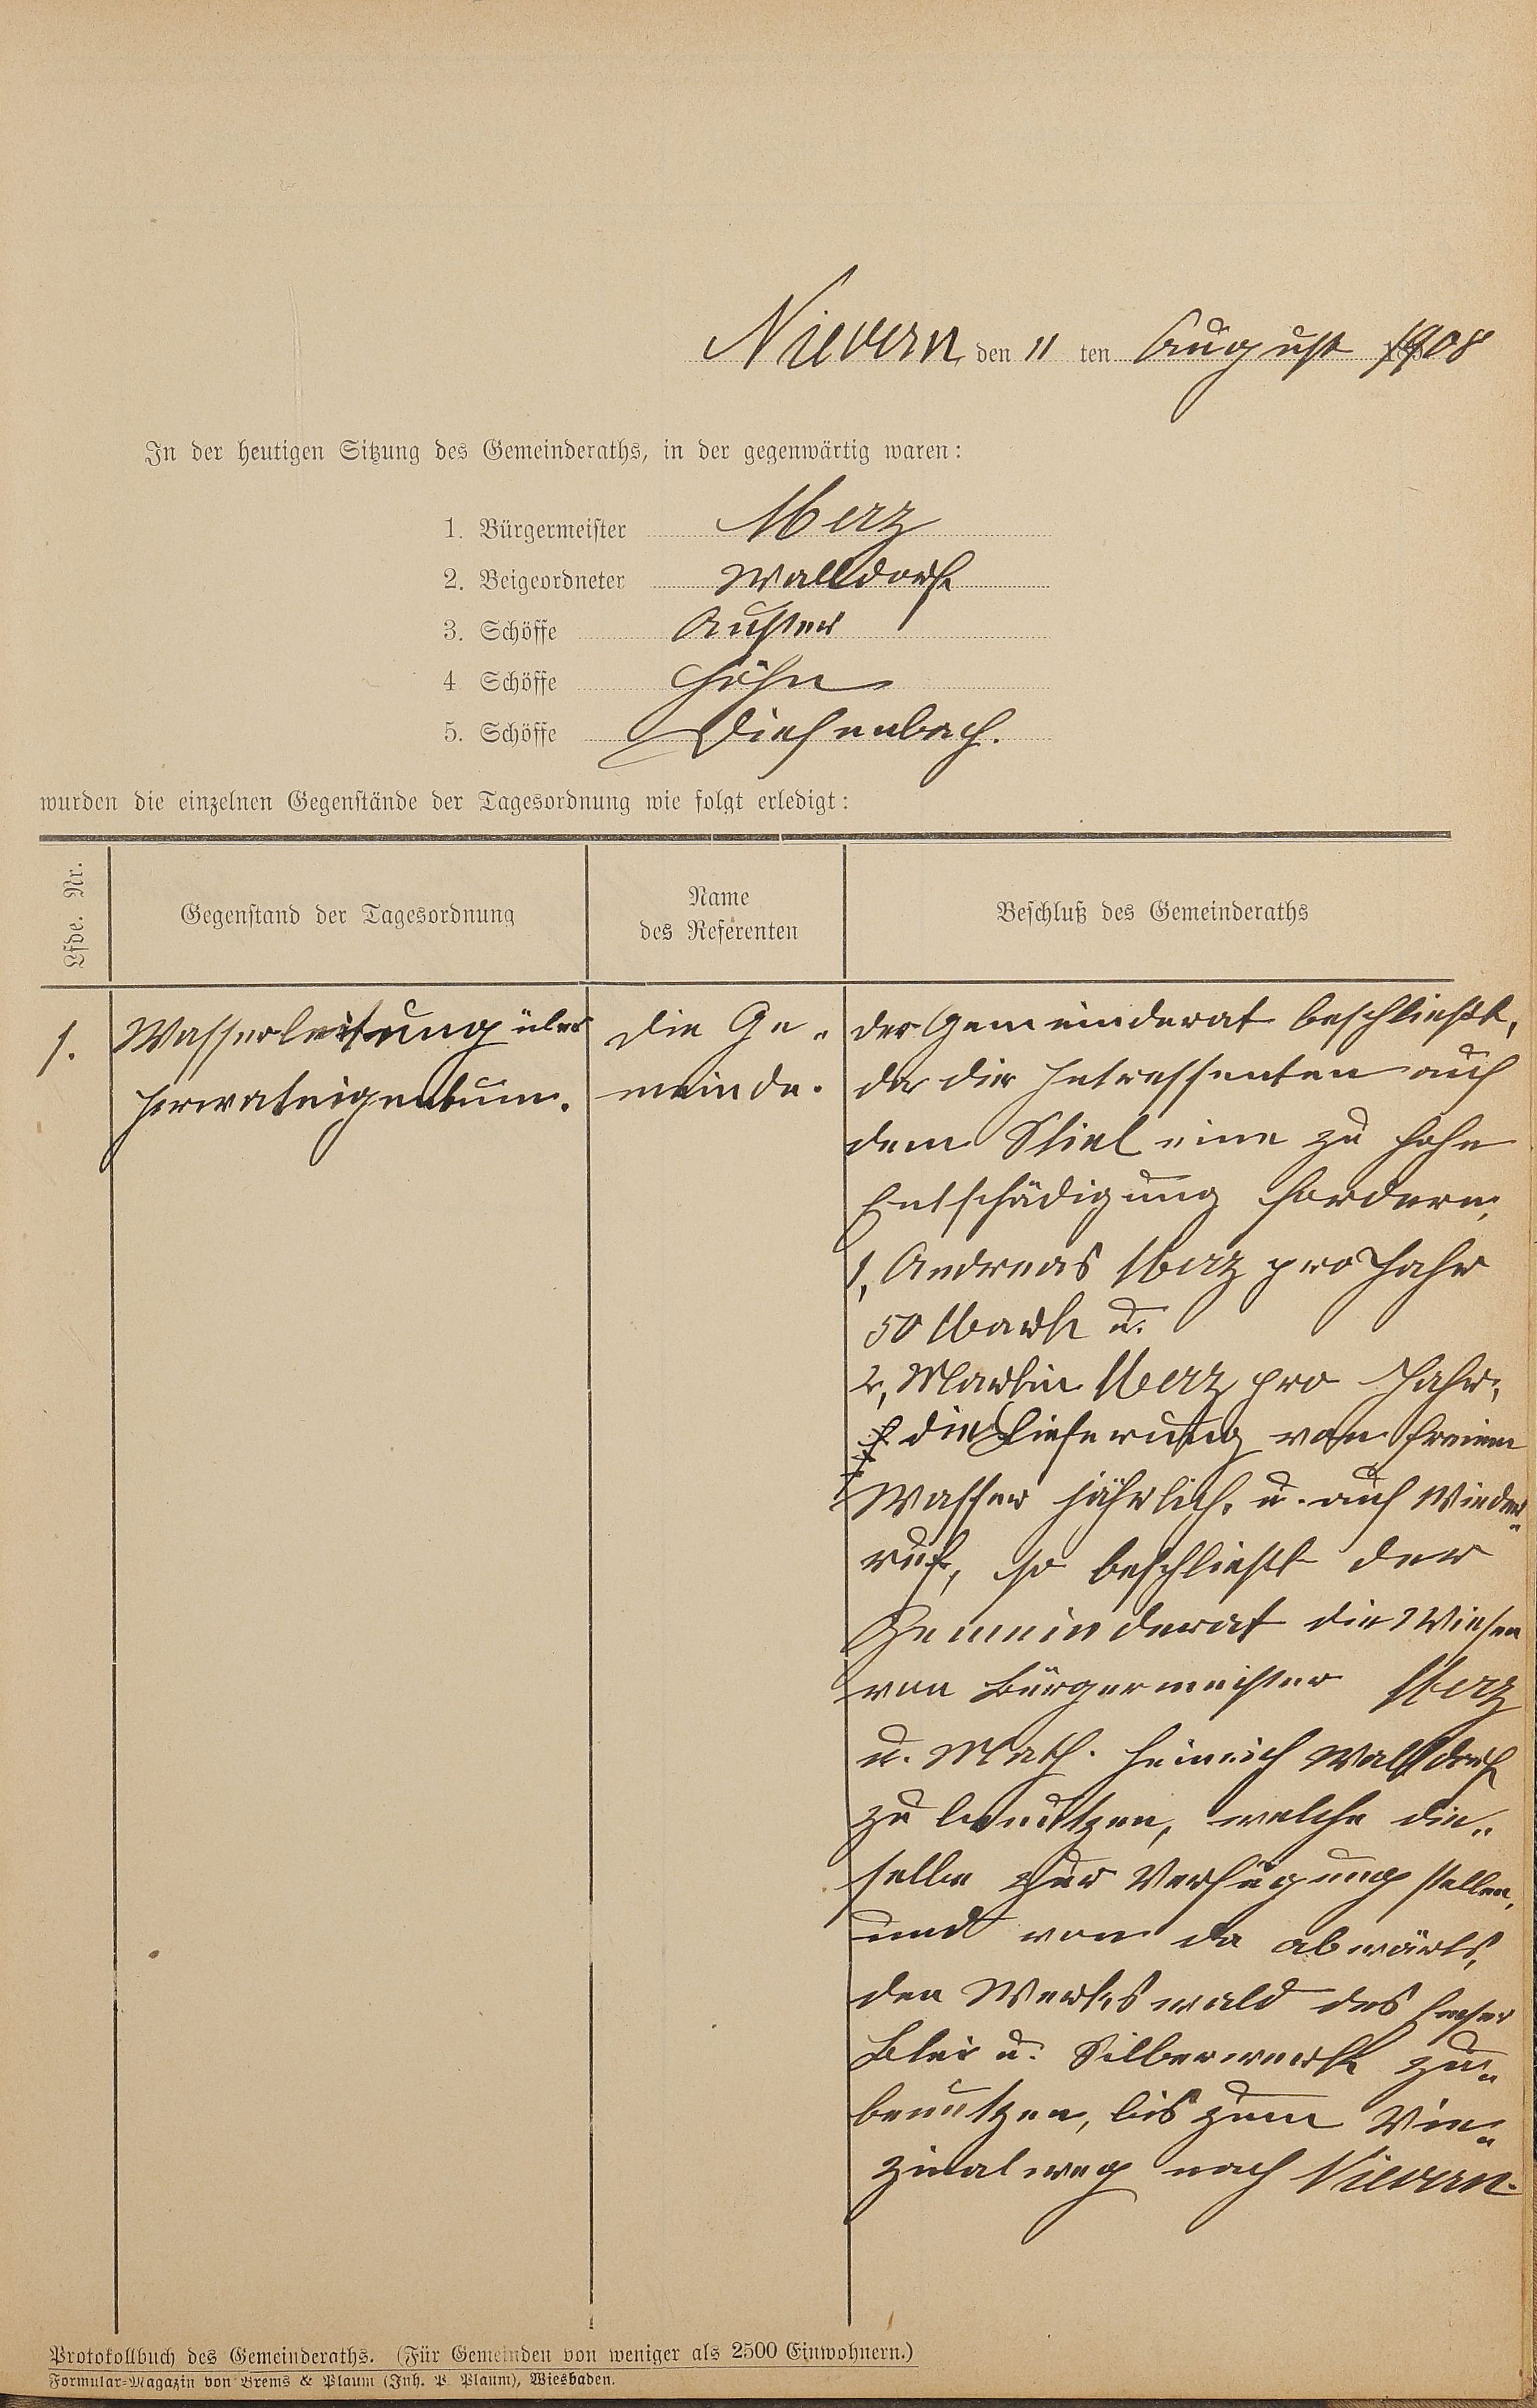 Nievern, den 11 ten August 1908
In der heutigen Sitzung des Gemeinderaths, in der gegenwärtig waren:
1. Bürgermeister Merz
2. Beigeordneter Walldorf
3. Schöffe Auster
4 Schöffe Höhn
5. Schöffe Diefenbach.
wurden die einzelnen Gegenstände der Tagesordnung wie folgt erledigt:
Lfde. Nr.
Gegenstand der Tagesordnung
Name
des Referenten
Beschluß des Gemeinderaths
1.
Wasserleitung über
Perwateigentum.
die Ge-
meinde.
der Gemeinderat beschließt,
da die Intressenten auf
dem Stiel eine zu hohe
Entschädigung fordern,
1, Andreas Merz pro Jahr
50 Mark u.
2, Martin Merz pro Jahr,
die Lieferung von freiem
Wasser jährlich, u. auf Wieder-
ruf, so beschließt der
Gemeinderat die Wiesen
von Bürgermeister Merz
u. Math. Heinrich Walldorf
zu benutzen, welche die-
selbe zur Verfügung stellen,
und von da abwärts,
den Werkswald des Emser
Blei u. Silberwerk zu-
benutzen, bis zum Vie-
zinalweg nach Nievern.
Protokollbuch des Gemeinderaths. (Für Gemeinden von weniger als 2500 Einwohnern.)
Formular-Magazin von Brems & Plaum (Inh. P. Plaum), Wiesbaden.